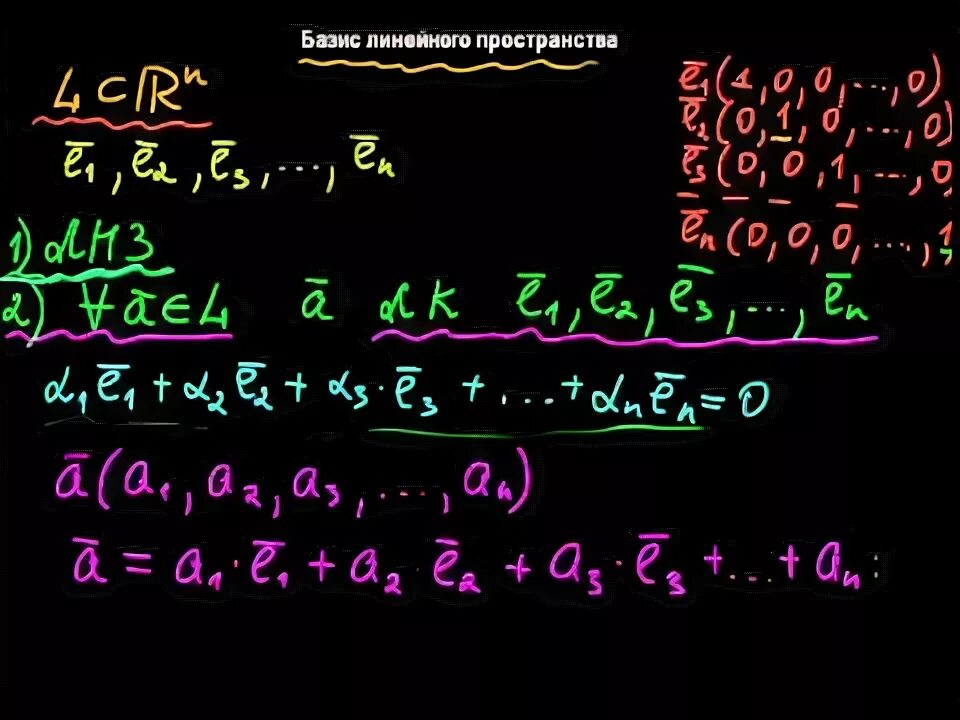 Базис линейного пространства
L ⊂ ℝⁿ
ē₁, ē₂, ē₃, ..., ēₙ
ē₁(1, 0, 0, ..., 0)
ē₂(0, 1, 0, ..., 0)
ē₃(0, 0, 1, ..., 0
ēₙ(0, 0, 0, ..., 1
1) ЛНЗ
2) ∀ā∈L ā ЛК ē₁, ē₂, ē₃, ..., ēₙ
α₁ē₁ + α₂ē₂ + α₃·ē₃ + ... + αₙēₙ = 0
ā(a₁, a₂, a₃, ..., aₙ)
ā = a₁·ē₁ + a₂·ē₂ + a₃·ē₃ + ... + aₙ